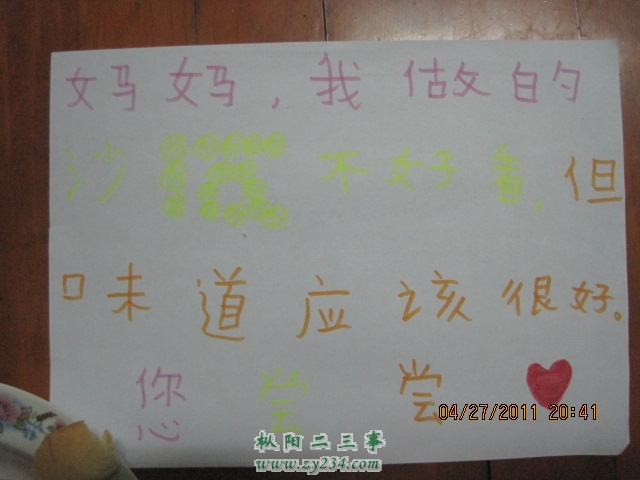 妈妈，我做的
沙 不好看，但
味道应该很好。
您尝尝
04/27/2011 20:41
枞阳二三事
www.zy234.com